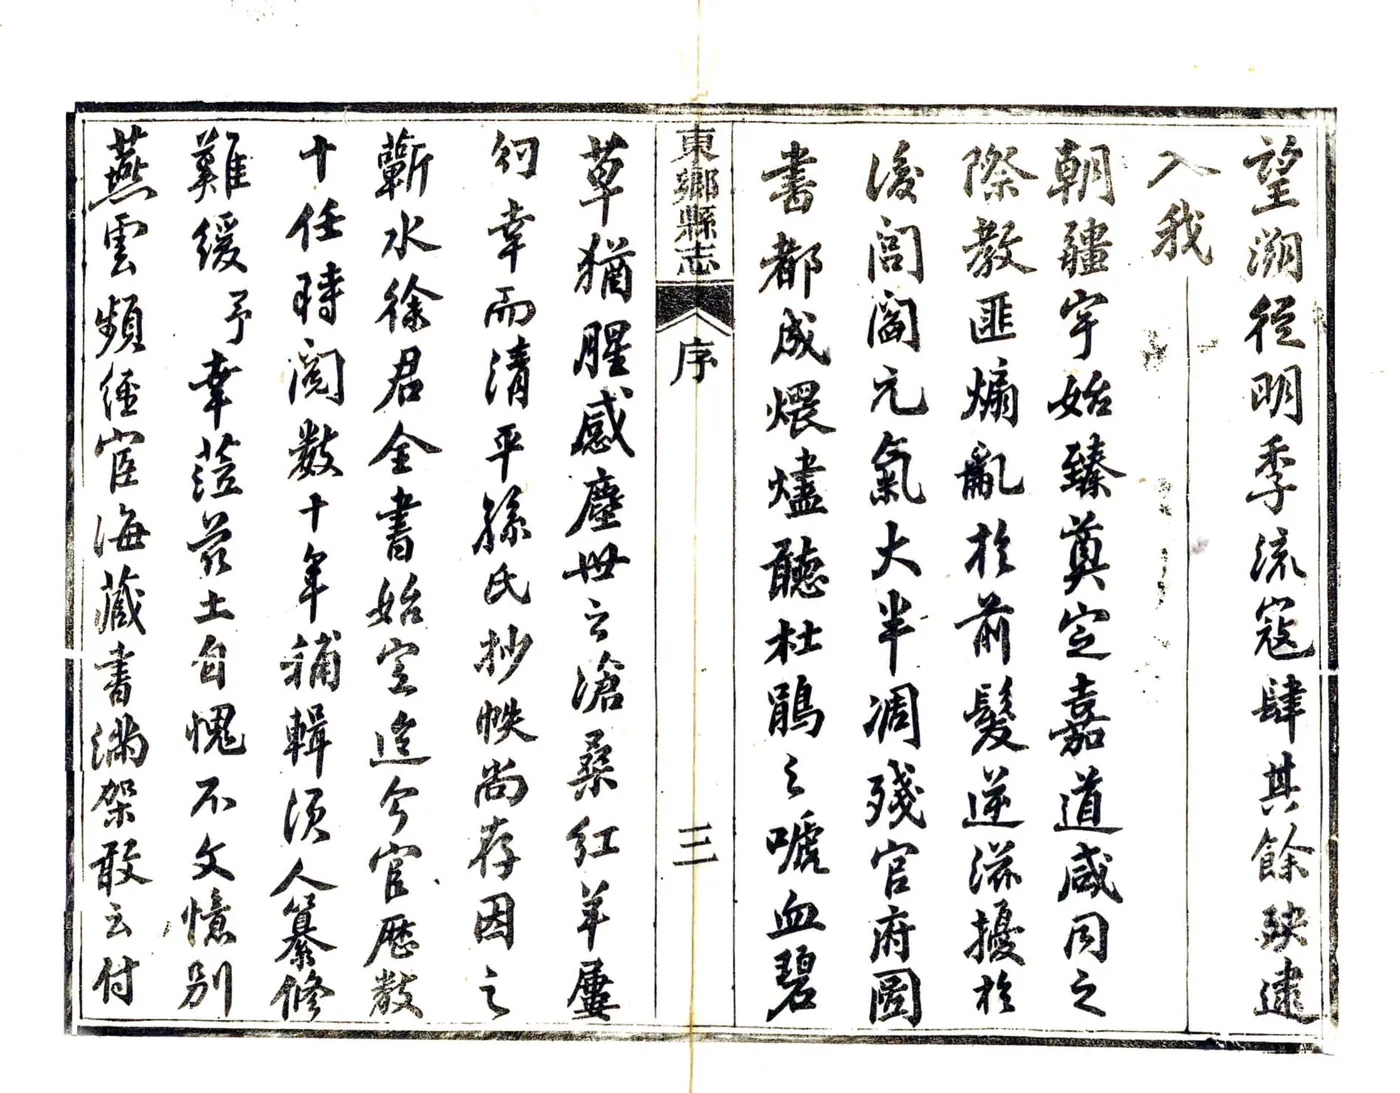 望溯從明季流寇肆其餘殃逮
入我
朝疆宇始臻奠定嘉道咸同之
際教匪煽亂於前髮逆滋擾於
後閭閻元氣大半凋殘官府圖
書都成煨燼聽杜鵑之嗁血碧
東鄉縣志
序
三
草猶腥感塵世之滄桑紅羊屢
何幸而清平孫氏抄帙尚存因之
蘄水徐君全書始定迄今官歷數
十任時閱數十年補輯須人纂修
難緩予幸蒞茲土自愧不文憶別
燕雲頻經宦海藏書滿架敢云付